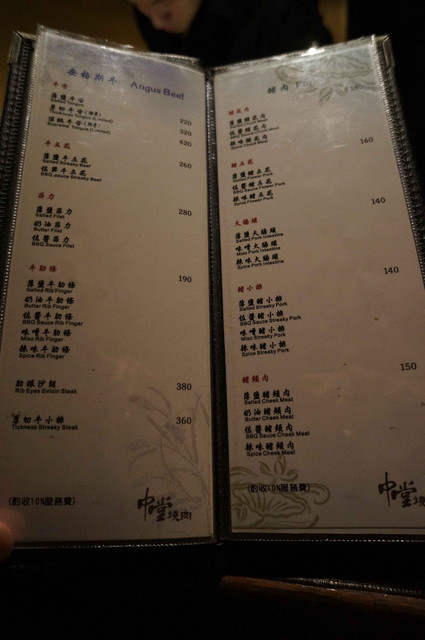 安格斯牛 Angus Beef
牛舌
薄鹽牛舌 220
Salted Tongue
厚切牛舌(限量) 320
Thickness Tongue (Limited)
頂級牛舌(限量) 420
Supreme Tongue (Limited)
牛五花
薄鹽牛五花 260
Salted Streaky Beef
佐醬牛五花
BBQ Sauce Streaky Beef
菲力
薄鹽菲力 280
Salted Filet
奶油菲力
Butter Filet
佐醬菲力
BBQ Sauce Filet
牛肋條 190
薄鹽牛肋條
Salted Rib Finger
奶油牛肋條
Butter Rib Finger
佐醬牛肋條
BBQ Sauce Rib Finger
味噌牛肋條
Miso Rib Finger
辣味牛肋條
Spice Rib Finger
肋眼沙朗 380
Rib Eyes Sirloin Steak
厚切牛小排 360
Tickness Streaky Steak
(酌收10%服務費)
中堂 燒肉
豬肉
160
豬五花
薄鹽豬五花 140
Salted Flower Pork
佐醬豬五花
BBQ Sauce Flower Pork
辣味豬五花
Spice Flower Pork
大腸頭
薄鹽大腸頭
Salted Pork Intestine
味噌大腸頭 140
Miso Pork Intestine
辣味大腸頭
Spice Pork Intestine
豬小排
薄鹽豬小排
Salted Streaky Pork
佐醬豬小排
BBQ Sauce Streaky Pork
味噌豬小排
Miso Streaky Pork
辣味豬小排 150
Spice Streaky Pork
豬頰肉
薄鹽豬頰肉
Salted Cheek Meat
奶油豬頰肉
Butter Cheek Meat
佐醬豬頰肉
BBQ Sauce Cheek Meat
辣味豬頰肉
Spice Cheek Meat
(酌收10%服務費)
中堂 燒肉